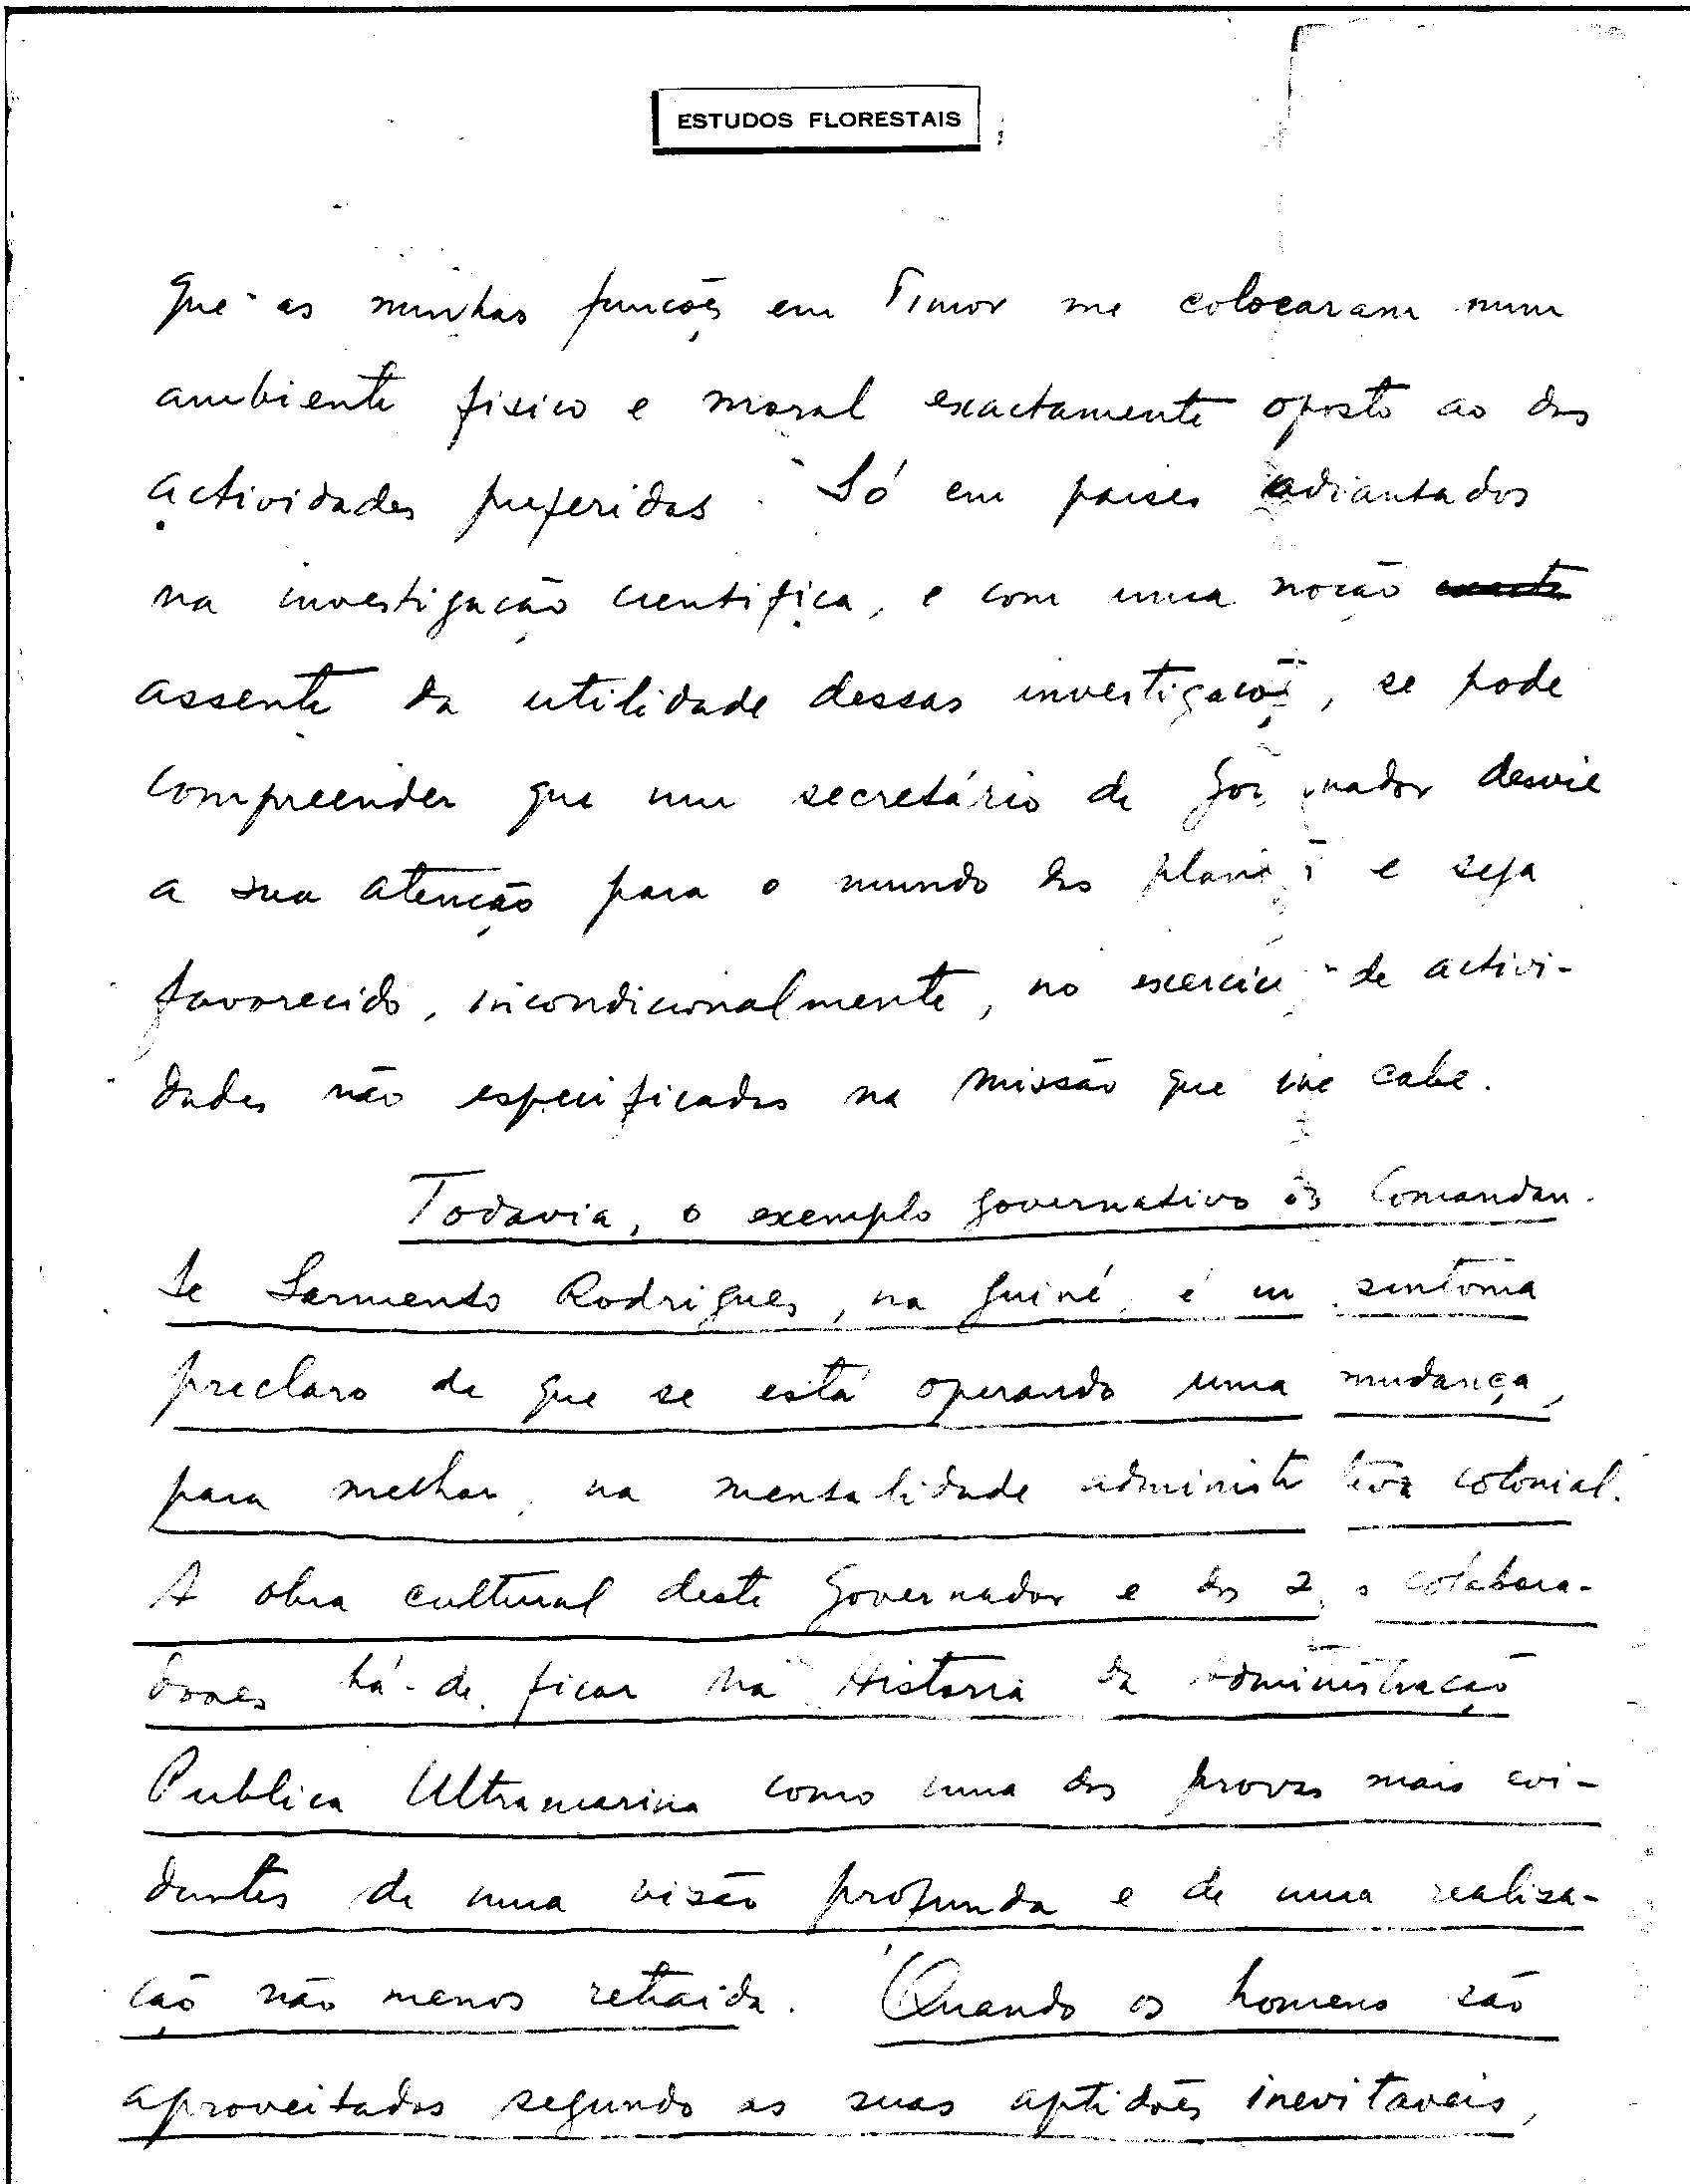 ESTUDOS FLORESTAIS
que as minhas funções em Timor me colocaram num
ambiente fisico e moral exactamente oposto ao das
actividades preferidas. Só em paises adiantados
na investigação cientifica, e com uma noção
assente da utilidade dessas investigações, se pode
compreender que um secretário de desvie
a sua atenção para o mundo das e seja
favorecido, incondicionalmente, no de activi-
dades não especificadas na missão que lhe cabe.
Todavia, o exemplo governativo do Comandan-
te Sarmento Rodrigues, na Guiné, é um sintoma
preclaro de que se está operando uma mudança,
para melhor, na mentalidade colonial.
A obra cultural deste Governador e dos colabora-
dores há-de ficar na Historia da Administração
Publica Ultramarina como uma das provas mais evi-
dentes de uma visão profunda e de uma realiza-
ção não menos retraida. Quando os homens são
aproveitados segundo as suas aptidões inevitaveis,